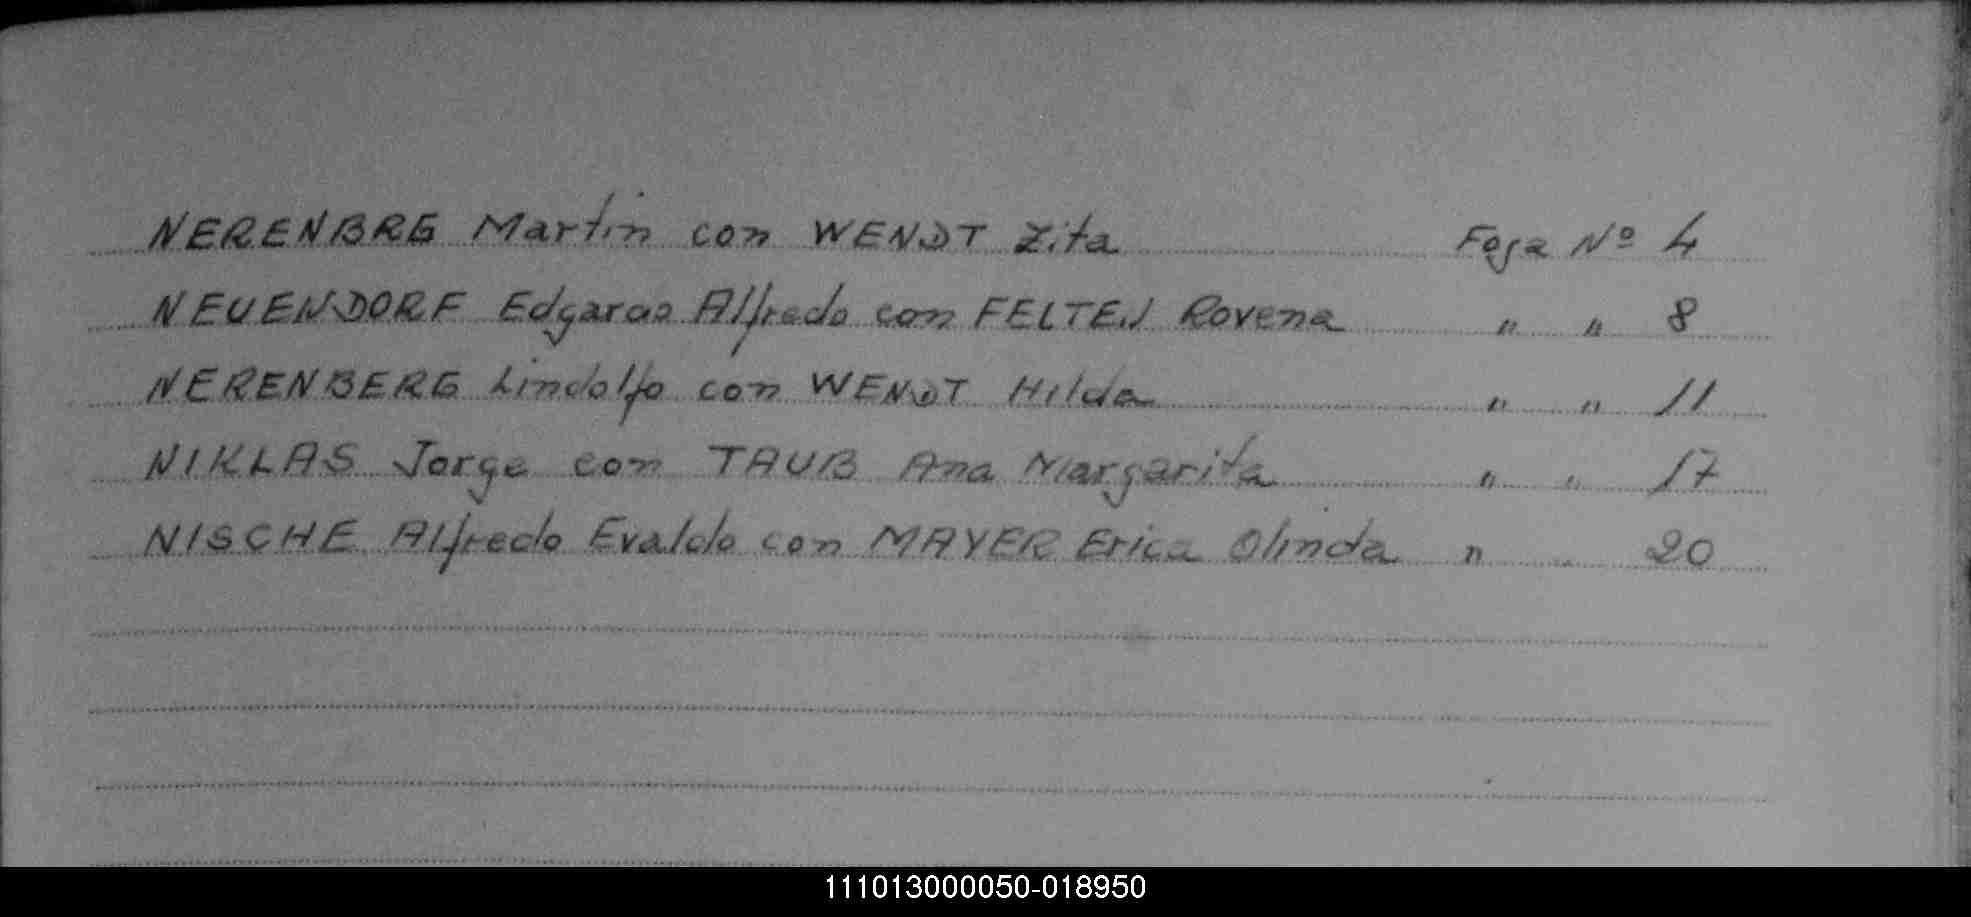 NERENBRG Martin con WENDT Zita Foja Nº 4
NEUENDORF Edgardo Alfredo con FELTEN Rovena " " 8
NERENBERG Lindolfo con WENDT Hilda " " 11
NIKLAS Jorge con TAUB Ana Margarita " " 17
NISCHE Alfredo Evaldo con MAYER Erica Olinda " " 20
111013000050-018950